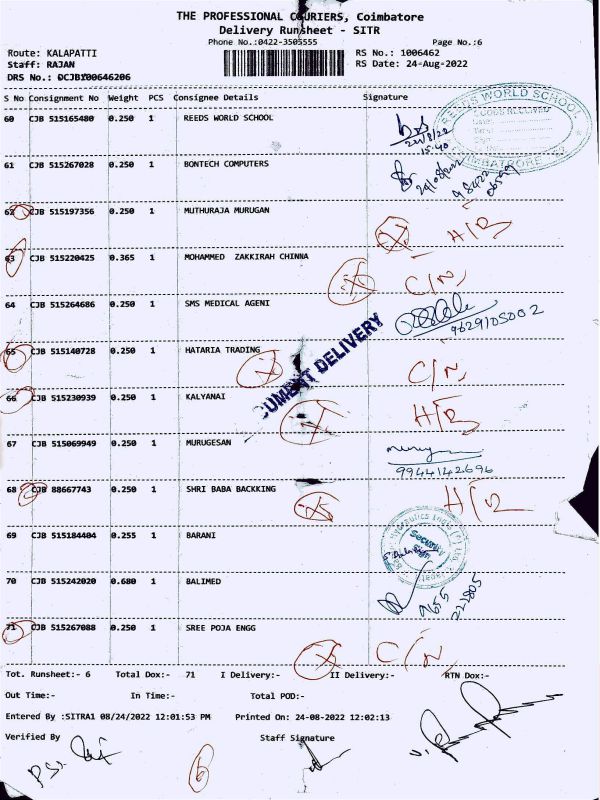 THE PROFESSIONAL COURIERS, Coimbatore
Delivery Runsheet - SITR
Phone No.:0422-3505555 Page No.:6
Route: KALAPATTI RS No.: 1006462
Staff: RAJAN RS Date: 24-Aug-2022
DRS No.: DCJB100646206
S No Consignment No Weight PCS Consignee Details Signature
60 CJB 515165480 0.250 1 REEDS WORLD SCHOOL
REEDS WORLD SCHOOL
GOODS RECEIVED
COIMBATORE
24/8/22
15:40
61 CJB 515267028 0.250 1 BONTECH COMPUTERS
62 CJB 515197356 0.250 1 MUTHURAJA MURUGAN
X H/B
63 CJB 515220425 0.365 1 MOHAMMED ZAKKIRAH CHINNA
X C/N
64 CJB 515264686 0.250 1 SMS MEDICAL AGENI
9629105002
65 CJB 515140728 0.250 1 HATARIA TRADING
X C/N
CUMENT DELIVERY
66 CJB 515230939 0.250 1 KALYANAI
X H/B
67 CJB 515069949 0.250 1 MURUGESAN
9944142696
68 CJB 88667743 0.250 1 SHRI BABA BACKKING
X
69 CJB 515184404 0.255 1 BARANI
Security
70 CJB 515242020 0.680 1 BALIMED
71 CJB 515267088 0.250 1 SREE POJA ENGG
X C/N
Tot. Runsheet:- 6 Total Dox:- 71 I Delivery:- II Delivery:- RTN Dox:-
Out Time:- In Time:- Total POD:-
Entered By :SITRA1 08/24/2022 12:01:53 PM Printed On: 24-08-2022 12:02:13
Verified By Staff Signature
6